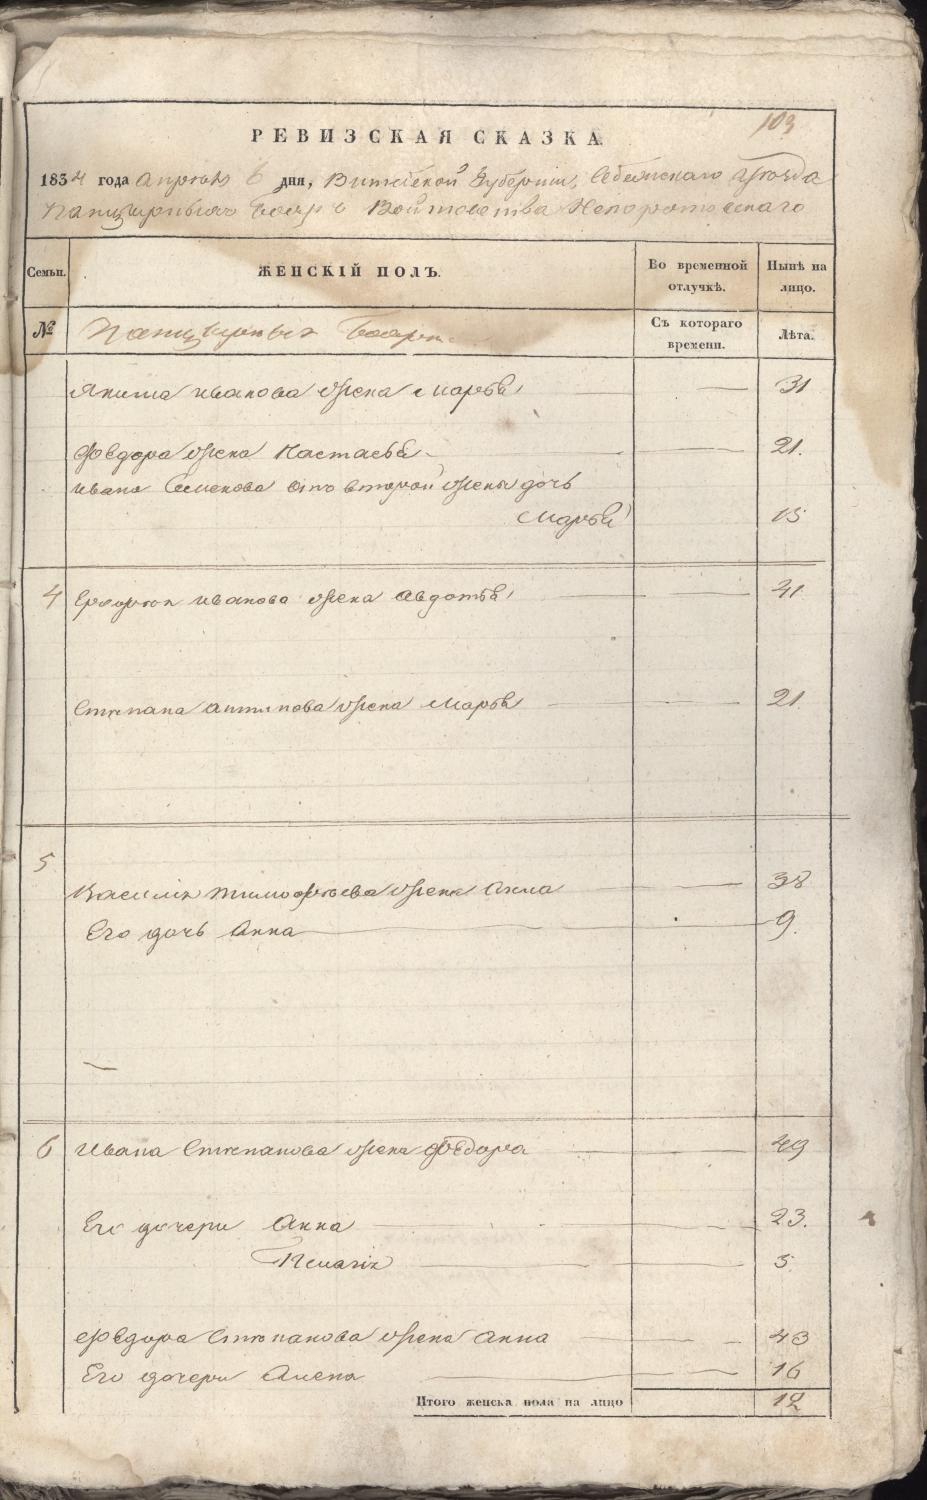 103
РЕВИЗСКАЯ СКАЗКА
1834 года апреля 6 дня, Витебской Губернии, Себежскаго Уезда
Панцырныхъ бояръ Войтовства Непоротовскаго
Семьи. ЖЕНСКІЙ ПОЛЪ. Во временной отлучкѣ. Нынѣ на лицо.
№ Панцырныхъ Бояръ Съ котораго времени. Лѣта.
Якима иванова жена марья 31
Ѳедора жена Настасья 21.
ивана Семенова отъ второй жены дочь
Марья 15
4 иванова жена авдотья 41
Степана антипова жена марья 21.
5
Василія тимофѣева жена Анна 38
Его дочь Анна 9.
6 ивана Степанова жена Ѳедора 49
Его дочери Анна 23.
Пелагія 5
Ѳедора Степанова жена анна 43
Его дочери Алена 16
Итого женска пола на лицо 12